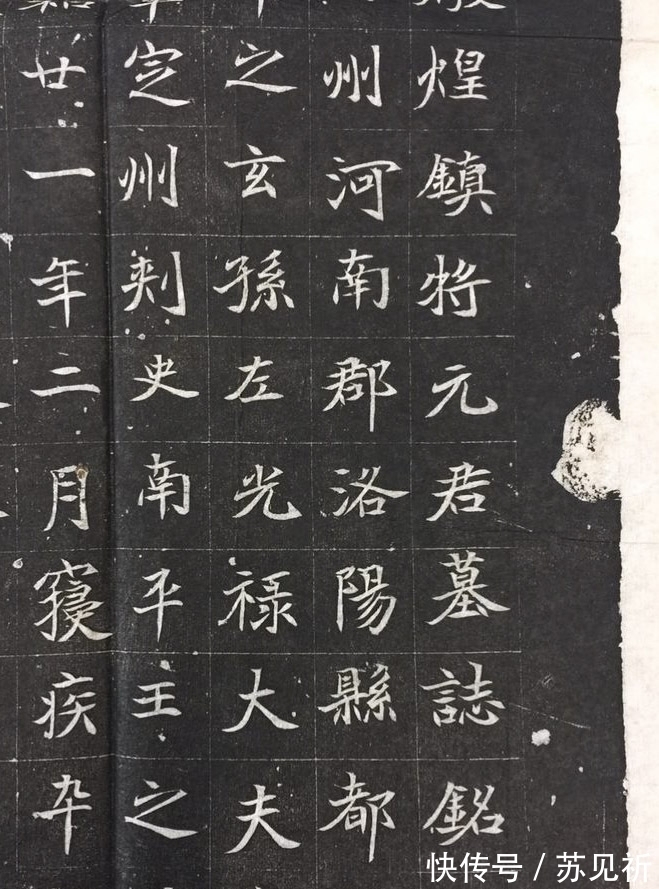 煌鎮将元君墓誌銘
州河南郡洛陽縣都
之玄孫左光禄大夫
定州刾史南平王之
廿一年二月寢疾卒
快传号 / 苏见祈